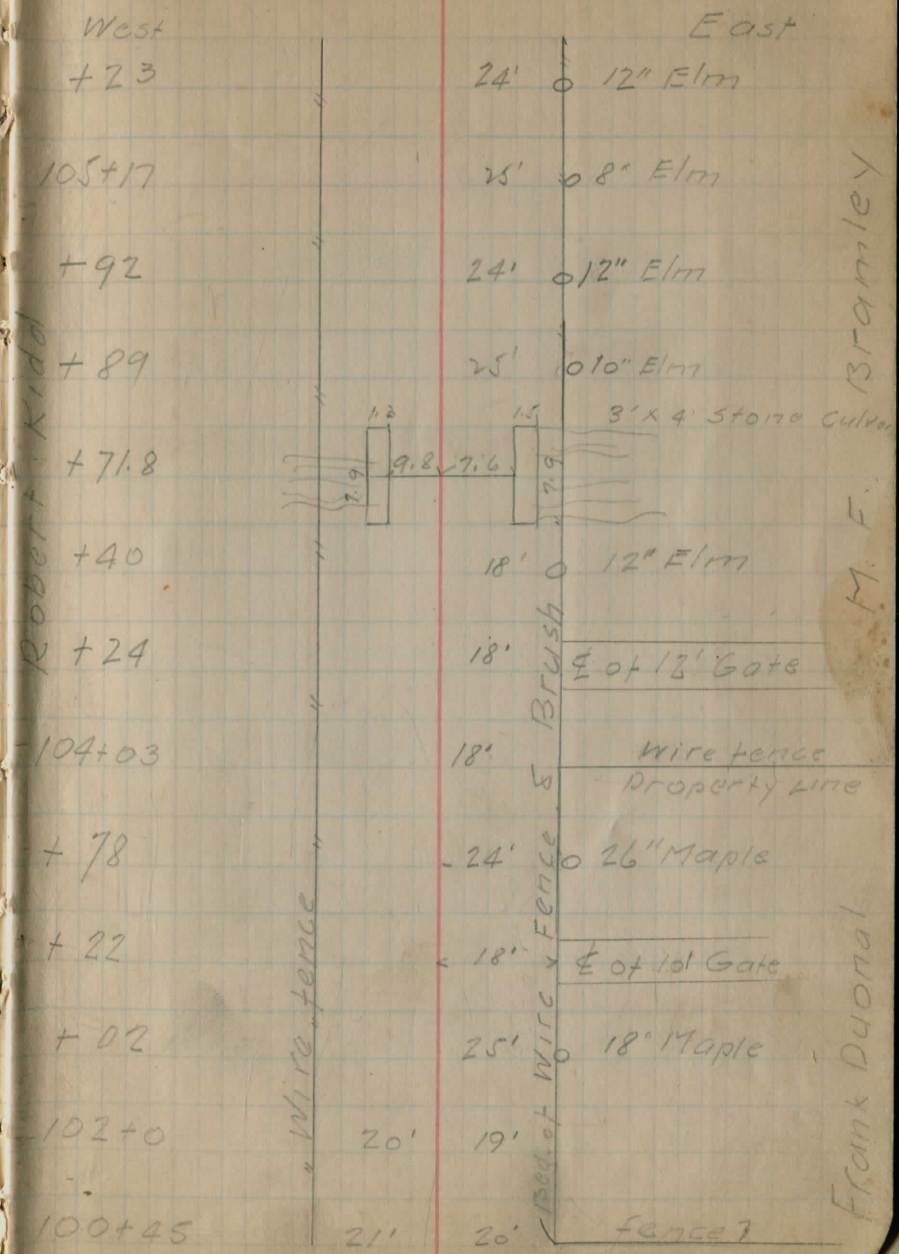 West East
+23 24' 12" Elm
105+17 25' 8" Elm
+92 24' 12" Elm
+89 25' 10" Elm
1.3 1.5 3' x 4' Stone
+71.8 7.9 9.8 7.6 7.9
+40 18' 12" Elm
+24 18' ℄ of 12' Gate
104+03 18' Wire fence
Property Line
+78 24' 26" Maple
+22 18' ℄ of 10' Gate
+02 25' 18" Maple
102+0 20' 19'
100+45 21' 20' fence?
Robert Kidd
Wire fence
Beg. of Wire Fence & Brush
M. F. Bramley
Frank